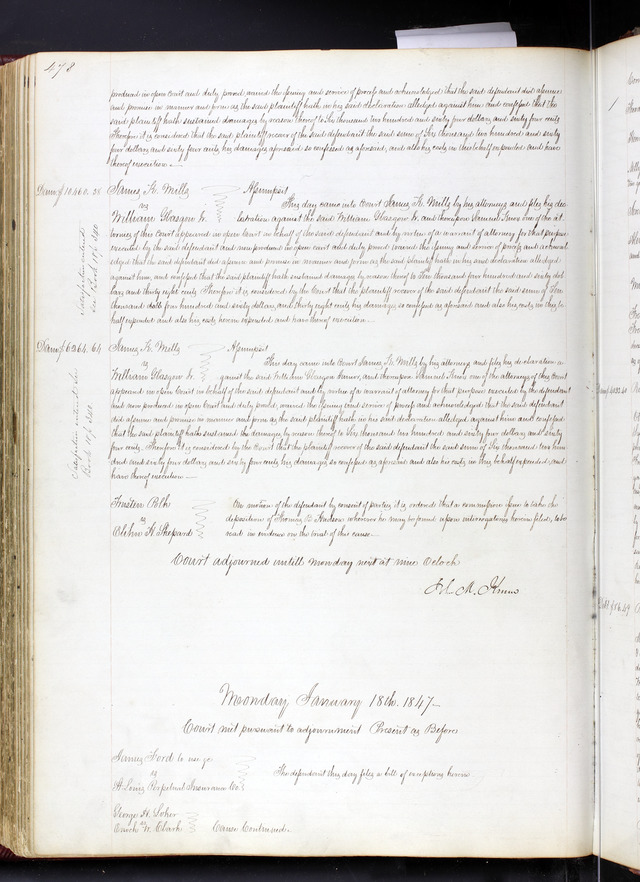 478
produced in open Court and duly proved, waived the issuing and service of process and acknowledged that the said defendant did assume
and promise in manner and form as the said plaintiff hath in his said declaration alleged against him and confessed that the
said plaintiff hath sustained damages by reason thereof to Six thousand two hundred and sixty four dollars and sixty four cents
Therefore it is considered that the said plaintiff recover of the said defendant the said sum of Six thousand two hundred and sixty
four dollars and sixty four cents, his damages aforesaid so confessed as aforesaid, and also his costs in this behalf expended and have
thereof execution.
Dam $10460.38
James H. Mills
vs
William Glasgow Jr.
Assumpsit
This day came into Court James H. Mills by his attorney and files his dec
laration against the said William Glasgow Jr. and thereupon Samuel one of the at
tornies of this Court appeared in open Court in behalf of the said defendant and by virtue of a warrant of attorney for that purpose
executed by the said defendant and now produced in open court and duly proved waived the issuing and service of process and acknowl
edged that the said defendant did assume and promise in manner and form as the said plaintiff hath in his said declaration alleged
against him, and confessed that the said plaintiff hath sustained damages by reason thereof to Ten thousand four hundred and sixty dol
lars and thirty eight cents. Therefore it is considered by the Court that the plaintiff recover of the said defendant the said sum of Ten
thousand four hundred and sixty dollars and thirty eight cents his damages so confessed as aforesaid and also his costs in this be
half expended and also his costs herein expended and have thereof execution.
Satisfaction entered
see Book
Dam $6264.64
James H. Mills
vs
William Glasgow Jr.
Assumpsit
This day came into Court James H. Mills by his attorney and files his declaration a
gainst the said William Glasgow Junior, and thereupon Samuel one of the attornies of this Court
appeared in open Court in behalf of the said defendant and by virtue of a warrant of attorney for that purpose executed by the defendant
and now produced in open Court and duly proved, waived the issuing and service of process and acknowledged that the said defendant
did assume and promise in manner and form as the said plaintiff hath in his said declaration alleged against him and confessed
that the said plaintiff hath sustained damages by reason thereof to Six thousand two hundred and sixty four dollars and sixty
four cents. Therefore it is considered by the Court that the plaintiff recover of the said defendant the said sum of Six thousand two hun
dred and sixty four dollars and sixty four cents, his damages so confessed as aforesaid and also his costs in this behalf expended and
have thereof execution
Satisfaction entered see
Book
Trusten Polk
vs
H. Shepard
On motion of the defendant by consent of parties, it is ordered that a commission issue to take the
deposition of Thomas B. Hudson wherever he may be found upon interrogatories herein filed, to be
read in evidence on the trial of this cause
Court adjourned untill Monday next at nine Oclock
M. Krum
Monday January 18th. 1847.
Court met pursuant to adjournment Present as Before
James Ford to use &c
vs
St. Louis Perpetual Insurance Co.
The defendant this day files a bill of exceptions herein
George H.
vs
W. Clark
Cause Continued